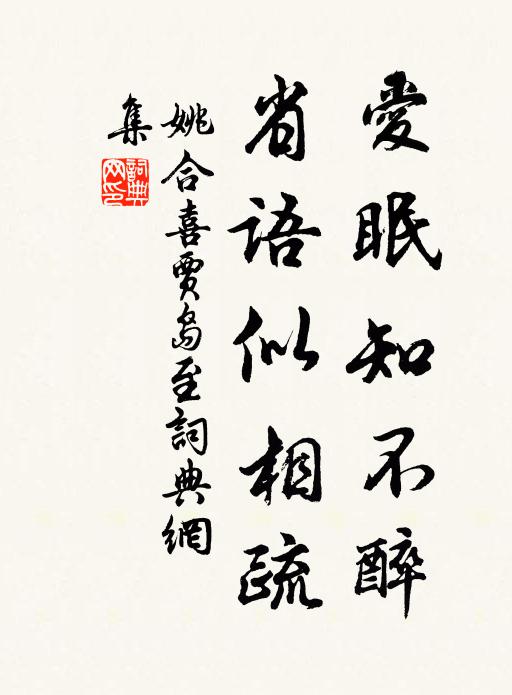 愛眠知不醉
省語似相疏
姚合喜賈島至詞典網
集
詞典
网印